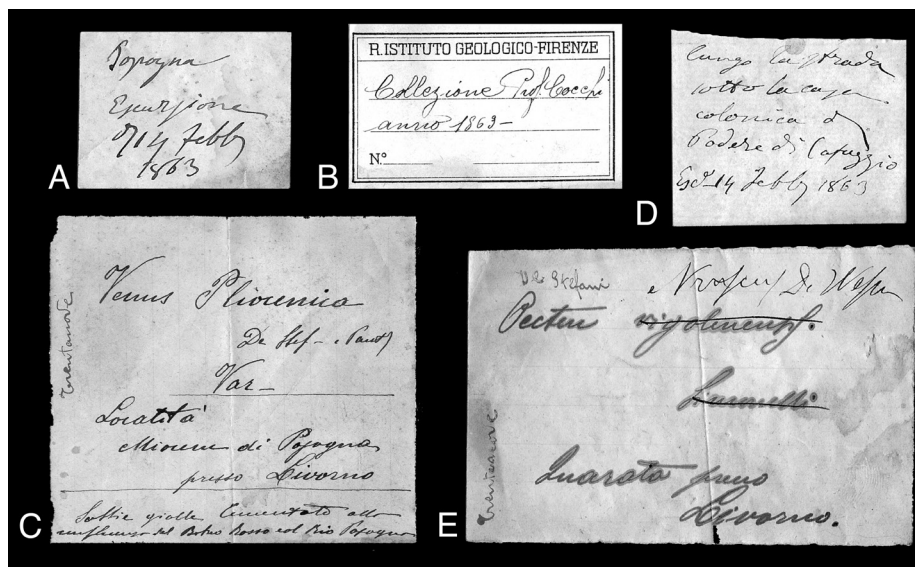 A
Popogna
Escursione
14 Febb
1863
B
R. ISTITUTO GEOLOGICO-FIRENZE
Collezione Prof. Cocchi
anno 1863-
N.º
D
lungo la strada
sotto la casa
colonica d
Podere di Cafaggio
14 Febb 1863
C
Venus Pliocenica
De Stef. - e Pant
Var_
Località
Miocene di Popogna
presso Livorno
Sabbie gialle cementate alla
confluenza del Botro Rosso col Rio Popogna
trentanove
E
De Stefani
Pecten
Simonelli
Quarata presso
Livorno.